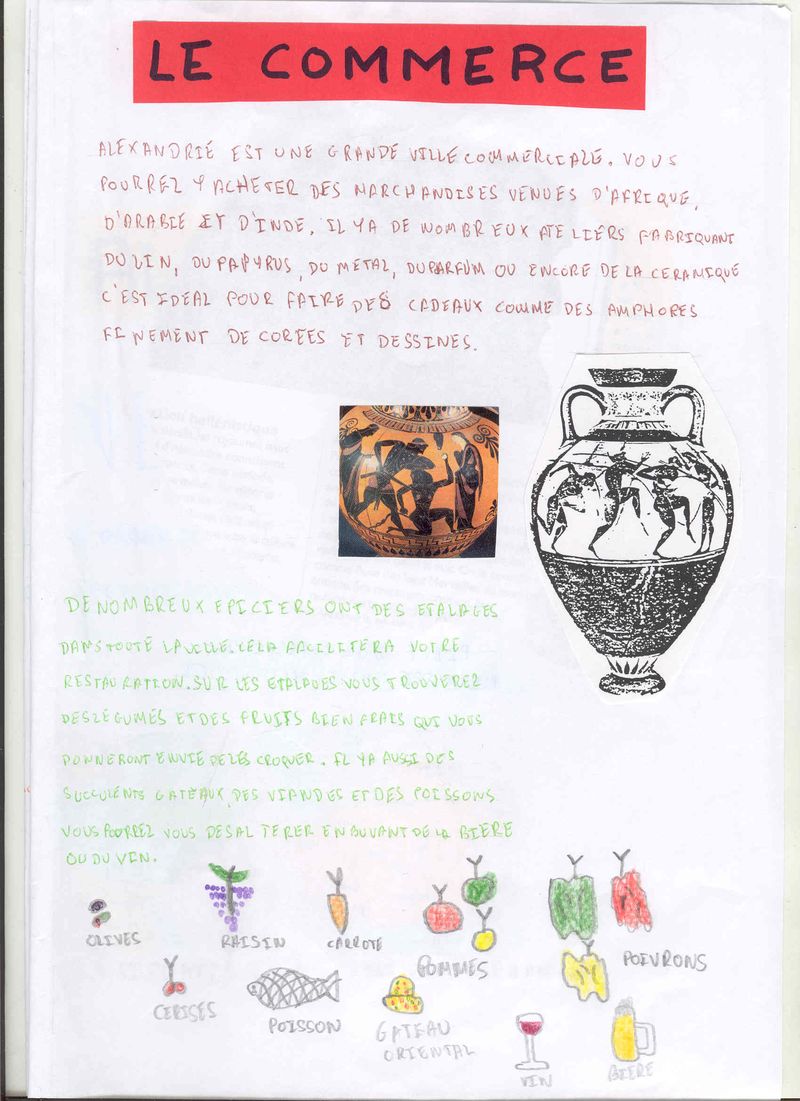 LE COMMERCE
ALEXANDRIE EST UNE GRANDE VILLE COMMERCIALE. VOUS
POURREZ Y ACHETER DES MARCHANDISES VENUES D'AFRIQUE,
D'ARABIE ET D'INDE, IL YA DE NOMBREUX ATELIERS FABRIQUANT
DU LIN, DU PAPYRUS, DU METAL, DU PARFUM OU ENCORE DE LA CERAMIQUE
C'EST IDEAL POUR FAIRE DES CADEAUX COMME DES AMPHORES
FINEMENT DE COREES ET DESSINES.
DE NOMBREUX EPICIERS ONT DES ETALAGES
DANS TOUTE LA VILLE. CELA FACILITERA VOTRE
RESTAURATION. SUR LES ETALAGES VOUS TROUVEREZ
DES LÉGUMES ET DES FRUITS BIEN FRAIS QUI VOUS
DONNERONT ENVIE DE LES CROQUER. IL YA AUSSI DES
SUCCULENTS GATEAUX, DES VIANDES ET DES POISSONS
VOUS POURREZ VOUS DESALTERER EN BUVANT DE LA BIERE
OU DU VIN.
OLIVES
RAISIN
CARROTE
POMMES
POIVRONS
CERISES
POISSON
GATEAU
ORIENTAL
VIN
BIERE